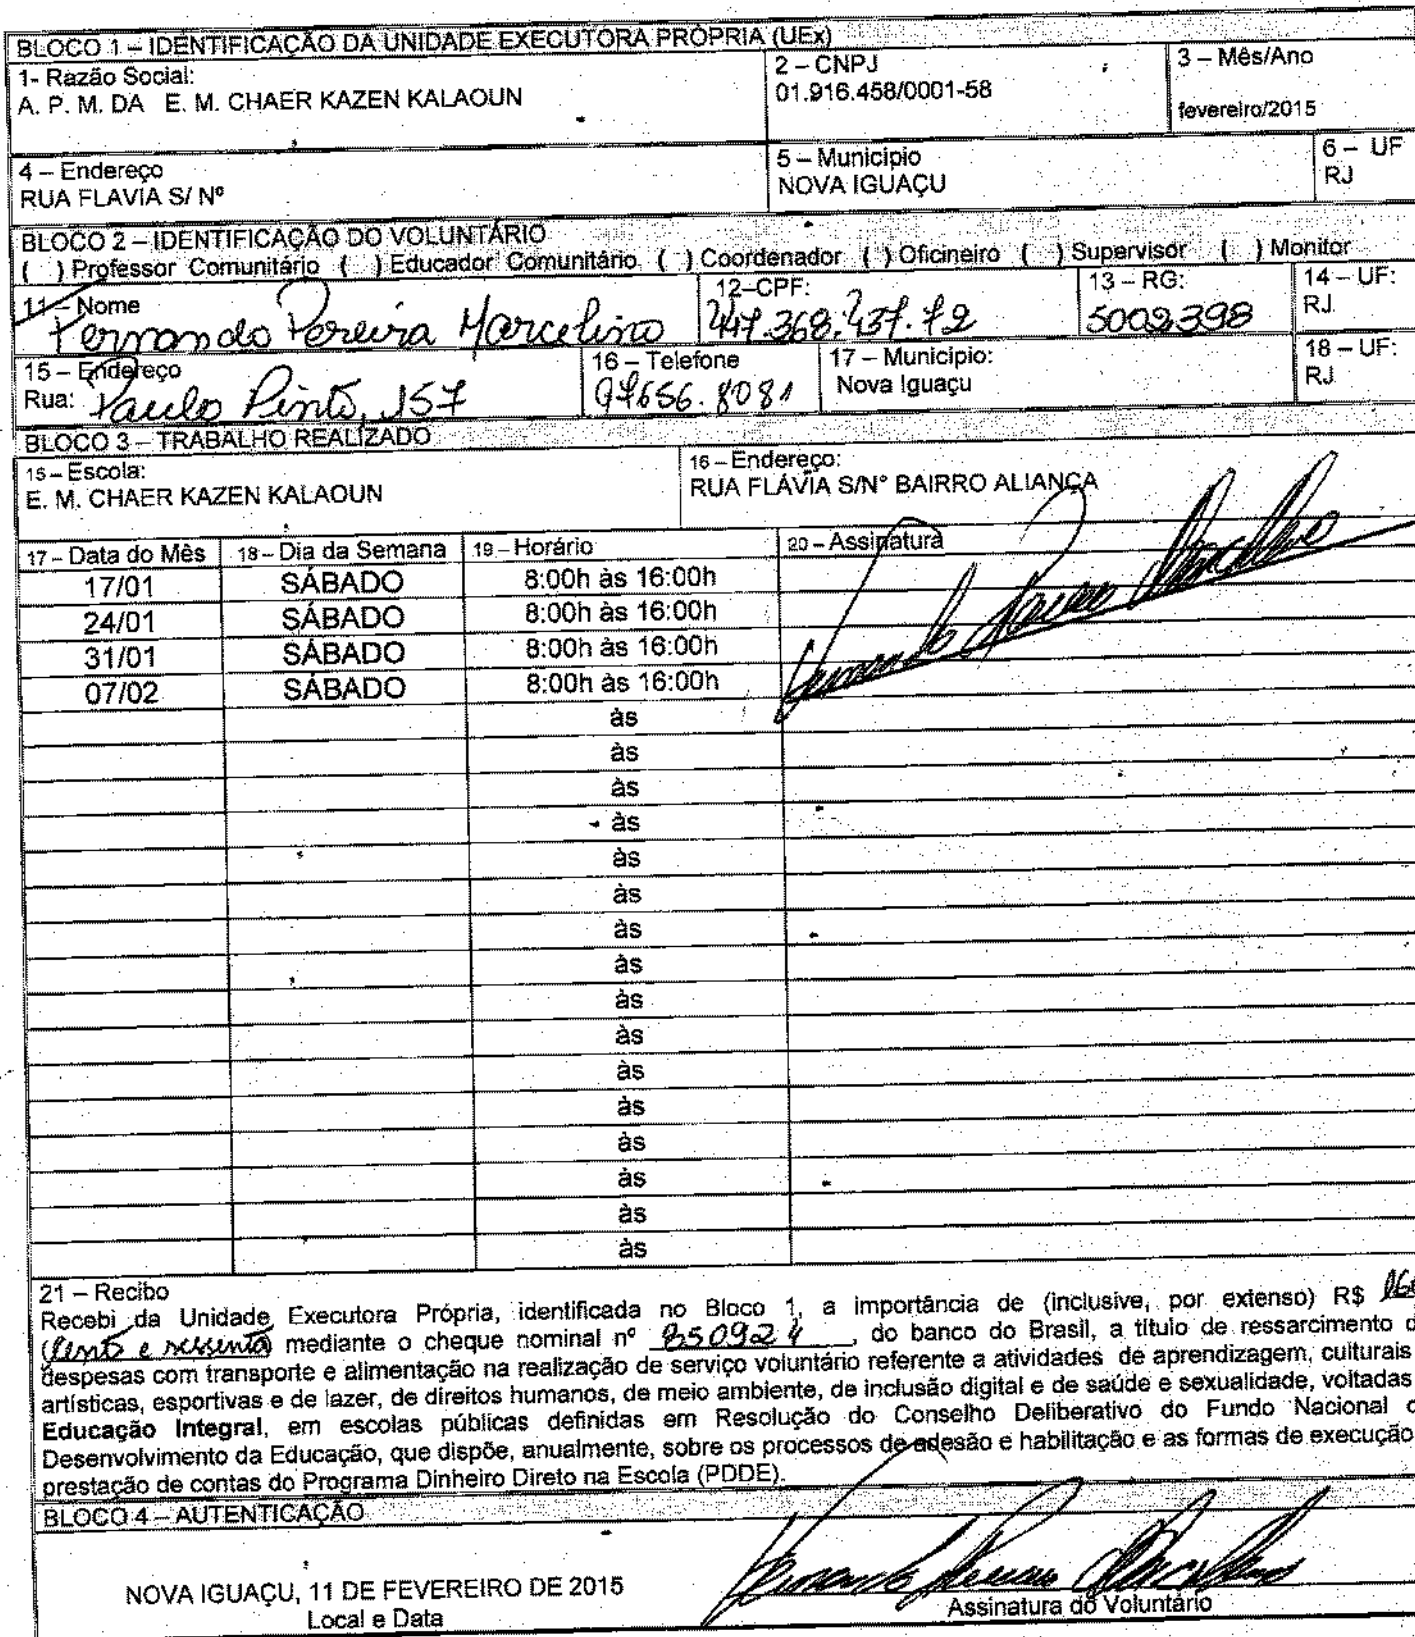 BLOCO 1 – IDENTIFICAÇÃO DA UNIDADE EXECUTORA PRÓPRIA (UEx)
1- Razão Social:
A. P. M. DA E. M. CHAER KAZEN KALAOUN
2 – CNPJ
01.916.458/0001-58
3 – Mês/Ano
fevereiro/2015
4 – Endereço
RUA FLAVIA S/ Nº
5 – Municipio
NOVA IGUAÇU
6 – UF
RJ
BLOCO 2 – IDENTIFICAÇÃO DO VOLUNTÁRIO
( ) Professor Comunitário ( ) Educador Comunitário ( ) Coordenador ( ) Oficineiro ( ) Supervisor ( ) Monitor
11 – Nome
Fernando Pereira Marcelino
12–CPF:
447.368.437.72
13 – RG:
5002398
14 – UF:
RJ
15 – Endereço
Rua: Paulo Pinto, 157
16 – Telefone
97656.8081
17 – Municipio:
Nova Iguaçu
18 – UF:
RJ
BLOCO 3 – TRABALHO REALIZADO
15 – Escola:
E. M. CHAER KAZEN KALAOUN
16 – Endereço:
RUA FLÁVIA S/N° BAIRRO ALIANÇA
17 – Data do Mês 18 – Dia da Semana 19 – Horário 20 – Assinatura
17/01 SÁBADO 8:00h às 16:00h
24/01 SÁBADO 8:00h às 16:00h
31/01 SÁBADO 8:00h às 16:00h
07/02 SÁBADO 8:00h às 16:00h
Fernando Pereira Marcelino
às
às
às
às
às
às
às
às
às
às
às
às
às
às
às
às
21 – Recibo
Recebi da Unidade Executora Própria, identificada no Bloco 1, a importância de (inclusive, por extenso) R$
(cento e sessenta) mediante o cheque nominal nº 850924, do banco do Brasil, a título de ressarcimento d
despesas com transporte e alimentação na realização de serviço voluntário referente a atividades de aprendizagem, culturais
artísticas, esportivas e de lazer, de direitos humanos, de meio ambiente, de inclusão digital e de saúde e sexualidade, voltadas
Educação Integral, em escolas públicas definidas em Resolução do Conselho Deliberativo do Fundo Nacional d
Desenvolvimento da Educação, que dispõe, anualmente, sobre os processos de adesão e habilitação e as formas de execução
prestação de contas do Programa Dinheiro Direto na Escola (PDDE).
BLOCO 4 – AUTENTICAÇÃO
NOVA IGUAÇU, 11 DE FEVEREIRO DE 2015
Local e Data
Fernando Pereira Marcelino
Assinatura do Voluntário